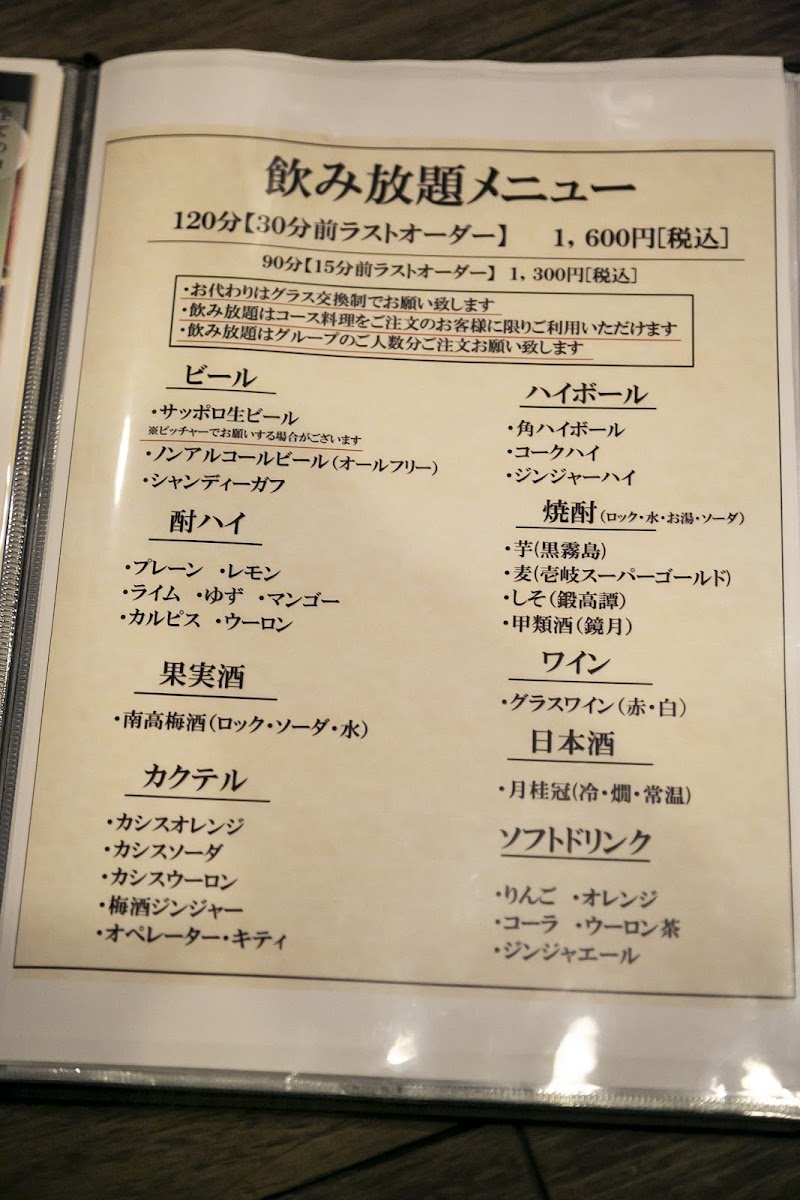 飲み放題メニュー
120分【30分前ラストオーダー】 1,600円[税込]
90分【15分前ラストオーダー】 1,300円[税込]
・お代わりはグラス交換制でお願い致します
・飲み放題はコース料理をご注文のお客様に限りご利用いただけます
・飲み放題はグループのご人数分ご注文お願い致します
ビール
・サッポロ生ビール
※ピッチャーでお願いする場合がございます
・ノンアルコールビール(オールフリー)
・シャンディーガフ
酎ハイ
・プレーン ・レモン
・ライム ・ゆず ・マンゴー
・カルピス ・ウーロン
果実酒
・南高梅酒(ロック・ソーダ・水)
カクテル
・カシスオレンジ
・カシスソーダ
・カシスウーロン
・梅酒ジンジャー
・オペレーター・キティ
ハイボール
・角ハイボール
・コークハイ
・ジンジャーハイ
焼酎(ロック・水・お湯・ソーダ)
・芋(黒霧島)
・麦(壱岐スーパーゴールド)
・しそ(鍛高譚)
・甲類酒(鏡月)
ワイン
・グラスワイン(赤・白)
日本酒
・月桂冠(冷・燗・常温)
ソフトドリンク
・りんご ・オレンジ
・コーラ ・ウーロン茶
・ジンジャエール